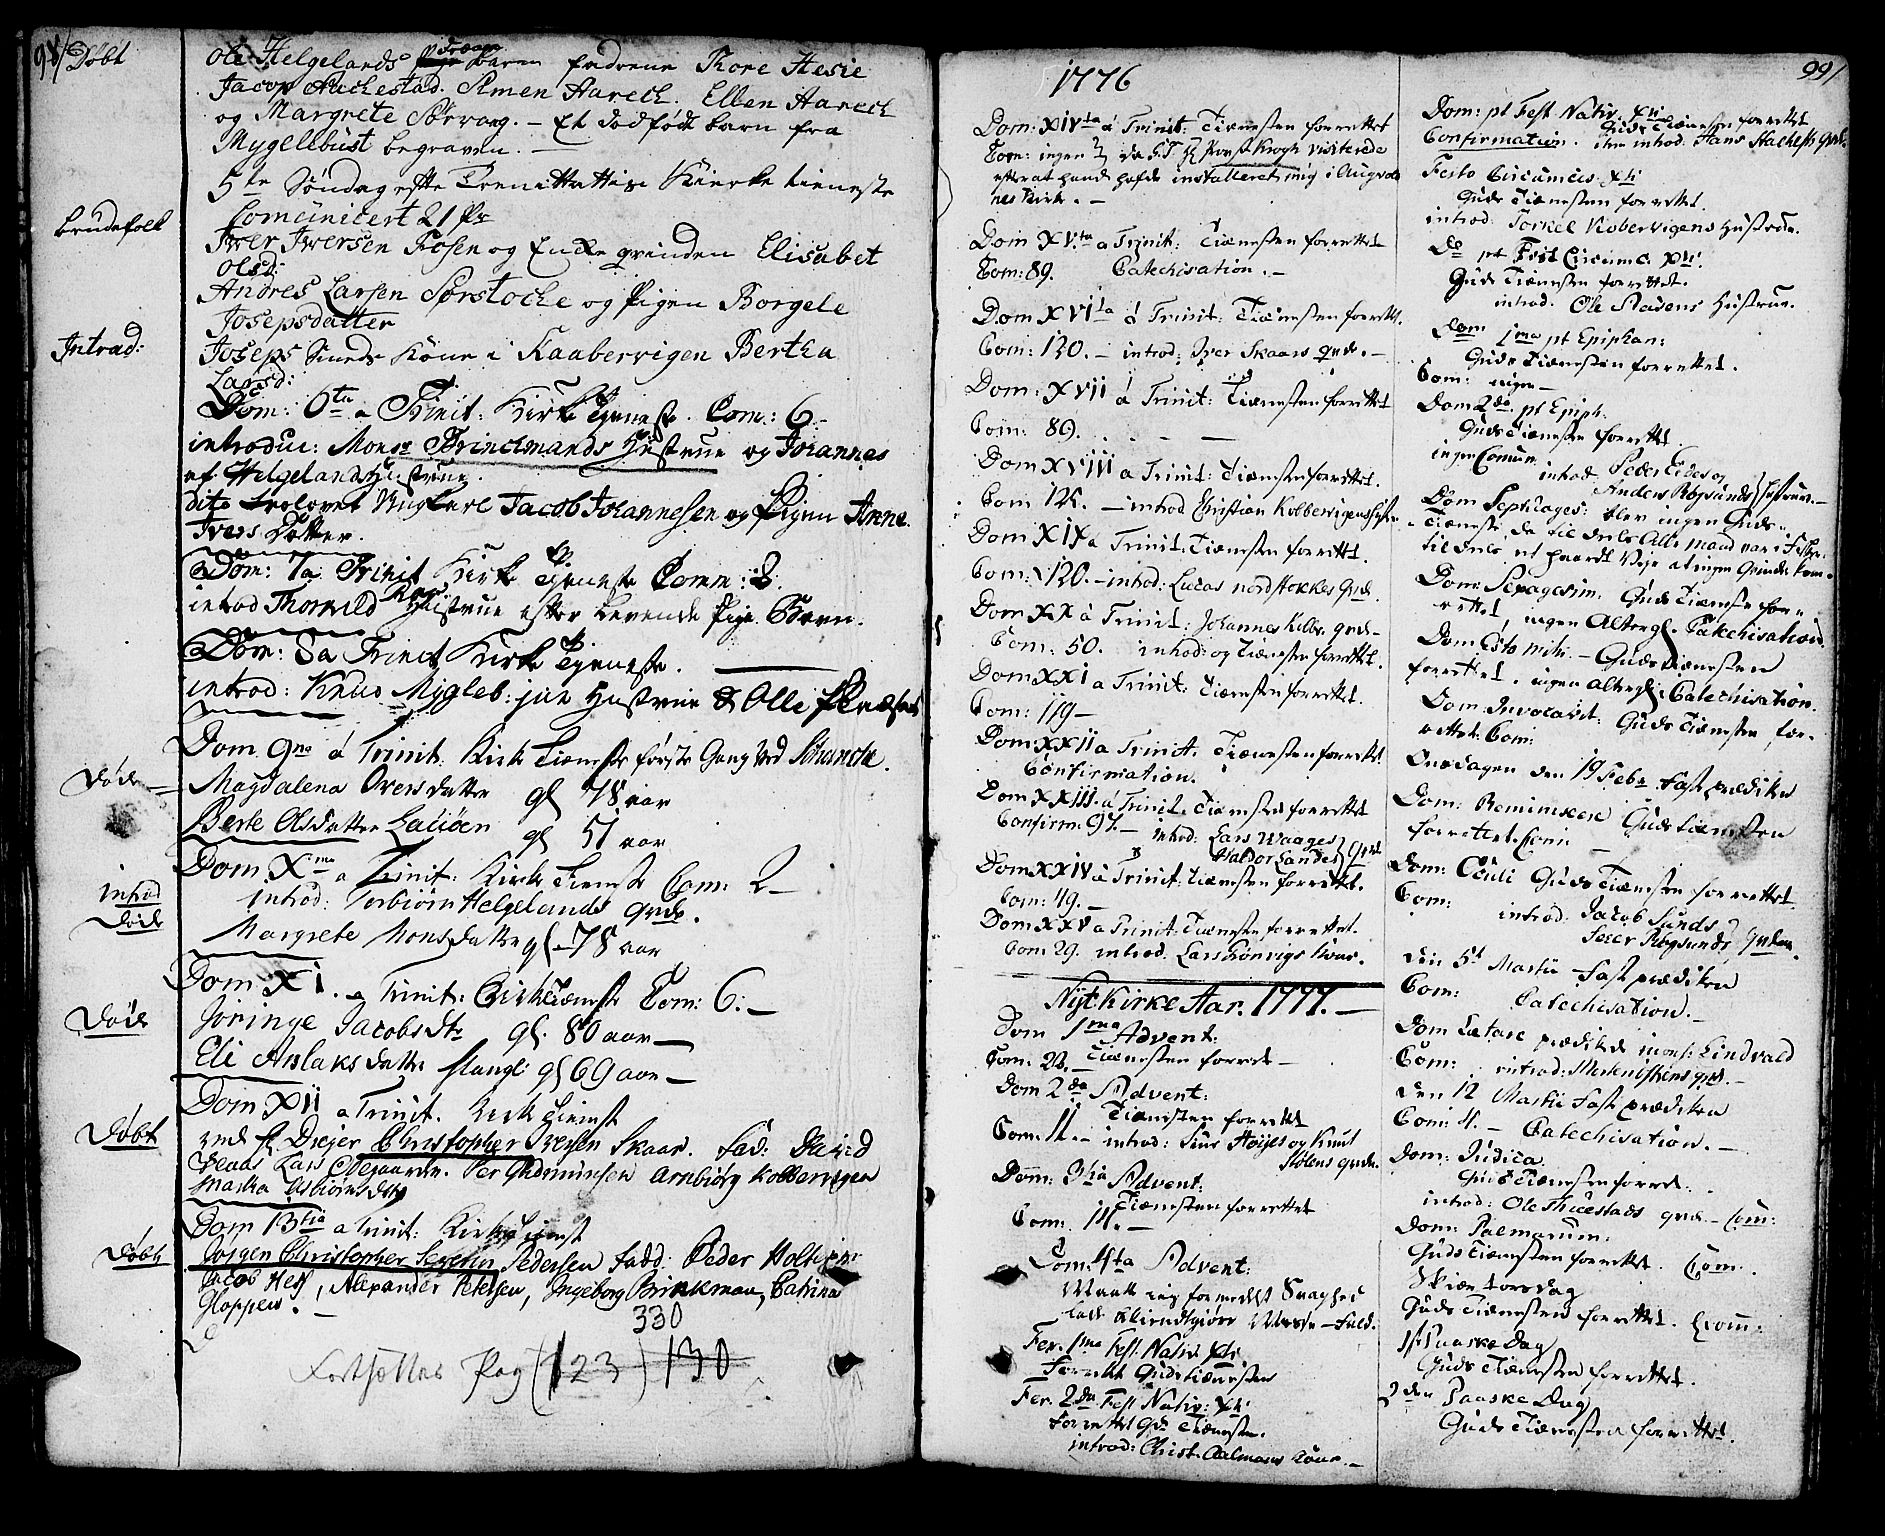 98/ Döbt
Ole Helgelands Træna
Pige Barn fadrene Thore Hesie
Jacop Auckestad. Simen Aarech. Ellen Aarech
og Margrete Sörvaag. – Et dödfödt barn fra
Myglebust begraven. –
5te Söndag efter Trenittattis Kierke tieneste
Comunicert 21 Pr
Brudefolk
Iwer Iwersen Rosen og Enke qvinden Elisabet
Olsd:
Andres Larsen Sörstocke og Pigen Borgele
Josepsdatter
Introd:
Joseps Smeds Kone i Kaabervigen Bertha
Larsd:
Dom: 6ta a Trinit: Kirke Tjeneste. Com: 6.
introduc: Monsr Brinckmands Hustrue og Johannes
af Helgeland Hustrue.
dito trolovet Ungkarl Jacob Johannesen og Pigen Anne
Ivers Dotter.
Dom: 7a Trinit Kirke Tjeneste Comm: 8.
introd Thorvild Hustrue efter levende Pige Barn.
Dom: 8a Trinit Kirke Tjeneste.
introd: Knud Mygleb: Hustrue & Olle
Dom 9na á Trinit: Kirke Tieneste förste Gang ved
Döde
Magdalena Overs datter gl 78 aar
Berte Olsdatter gl 51 aar
Dom Xma a Trinit: Kirke Tieneste Com: 2 –
introd
introd: Torbiörn Helgelands Qvde.
Döde
Margrete Mons datter gl – 78 aar
Dom XI. a Trinit: Kirke Tieneste Com: 6. –
Döde
Jöringe Jacobsdtr gl. 80 aar –
Eli Aslaks datter Stangl: gl 69 aar –
Dom XII a Trinit. Kirke Tienest
Döbt
Christopher Iversen Skaar. Fad: David
Lars Ödegaarden. Per Gudmunsen Arnbiörg Kolbervigen
Marta Asbiörnsdtr
Dom 13tia a Trinit: Kirke Tienest
Döbt
Jörgen Christopher Severin Pedersen Fadd: Peder Holterm
Jacob Hess, Alexander Petersen, Ingeborg Brinkman, Catrina
Hoppen. –
330
Fortsættes Pag (123) 130
1776
Dom: XIVta á Trinit: Tiænesten forrettet
Com: ingen da Hr Provst Krogh visiterede
efterat hand hafde installeret mig i Augvolds
nes Kirke. –
Dom XVta a Trinit: Tiænesten forrettet
Com: 89. Catechisation. –
Dom XVIta á Trinit: Tiænesten forrettet.
Com: 130. – introd: Iver Skaars qvde. –
Dom: XVII á Trinit: Tiænesten forrettet
Com: 89. . – –
Dom XVIII a Trinit: Tiænesten forrettet.
Com 125. – introd Christian Kolbervigens Hustr
Dom XIX a Trinit: Tiænesten forrettet.
Com: 120. – introd: Lucas nordstokkes Qvd.
Dom XX á Trinit: Johannes Kolbr. qvd –
Com: 50. introd: og Tiænesten forrettet.
Dom XXI a Trinit: Tiænesten forrettet.
Com: 119 –
Dom: XXII a Trinit. Tiænesten forrettet
Confirmation.
Dom XXIII. á Trinit. Tiænesten forrettet
Confirm: 97. – introd: Lars Waages
Haldor Sandes Qvd.
Dom XXIV á Trinit: Tiænesten forrettet.
Com: 49. –
Dom XXV a Trinit: Tiænesten forrettet.
Com 29. introd. Lars Grönvigs Kone.
Nyt Kirke Aar. 1777. –
Dom 1ma Advent:
Com: 22. – Tiænesten forret –
Dom 2da Advent:
Tiænesten forrettet
Com: 11. – introd: Siur Höijes og Knut
Stölens qvde.
Dom: 3tia Advent:
Tiænesten forrettet
Com: 14. –
Dom: 4ta Advent:
Maatte jeg formedelst Svaghed
lade Klienetgiöre Messe – fald.
Fer. 1ma Fest. Nativ. Xti.
Forrettet Gudstiænesten
Fer. 2da Fest Nativ: Xti
Forrettet Gds Tiænesten.
introd: Christ. Aalmans Kone. –
99/
Dom: pt Fest Nativ. Xti
Guds Tiænesten forrettet
Confirmation. item introd. Hans Stachest Qvde.
Festo Circumcis: Xti
Guds Tiænesten forrettet.
introd: Torkel Visbervigens Hustrue.
Do pt Fest Circumc: Xti.
Guds Tiænesten forrettet.
introd. Ole Stadens Hustrue.
Dom 1ma pt Epiphan:
Guds Tiænesten forrettet.
Com: ingen –
Dom 2da. pt Epiph.
Guds Tiænesten forrettet.
ingen Comun: introd. Peder Eides og
Anders Rögsunds Hustruer. –
Dom Septuages: blev ingen Guds –
Tiæneste, da til deels Alle mand var i Fiske
til deels et haardt Veje at ingen Qvinde kom.
Dom: Sexagesim: Guds Tiæneste for –
rettet, ingen Alterg:. Catechisation
Dom Esto mihi. – Guds Tiænesten
forrettet. ingen alterg: Catechisation.
Dom: Invocavit: Guds Tiænesten for –
rettet: Com:
Onsdagen den 19 Febr. Fast prædiken
Dom: Reminiscere Gudstiænesten
forrettet. Com: –
Dom: Oculi Guds Tiænesten forrettet.
Com: introd: Jacob Sunds
Siver Rögsunds, Qvder.
den 5t Martii Fast prædiken
Com: Catechisation. –
Dom Lætare prædikede mons: Lindvald
Com: introd: Qvd. –
den 12 Martii Fast prædiken
Com: 4. – Catechisation. –
Dom: Judica.
Guds Tiænesten forret. .
introd: Ole Thuestads qvd. – Com:
Dom: Palmarum:
Guds Tiænesten forrettet. Com:
Skiær torsdag
Guds Tiænesten forrettet. Com:
1st Paaske Dag
Guds Tiænesten forrettet.
2den Paaske Dag
Guds Tiænesten forrettet.